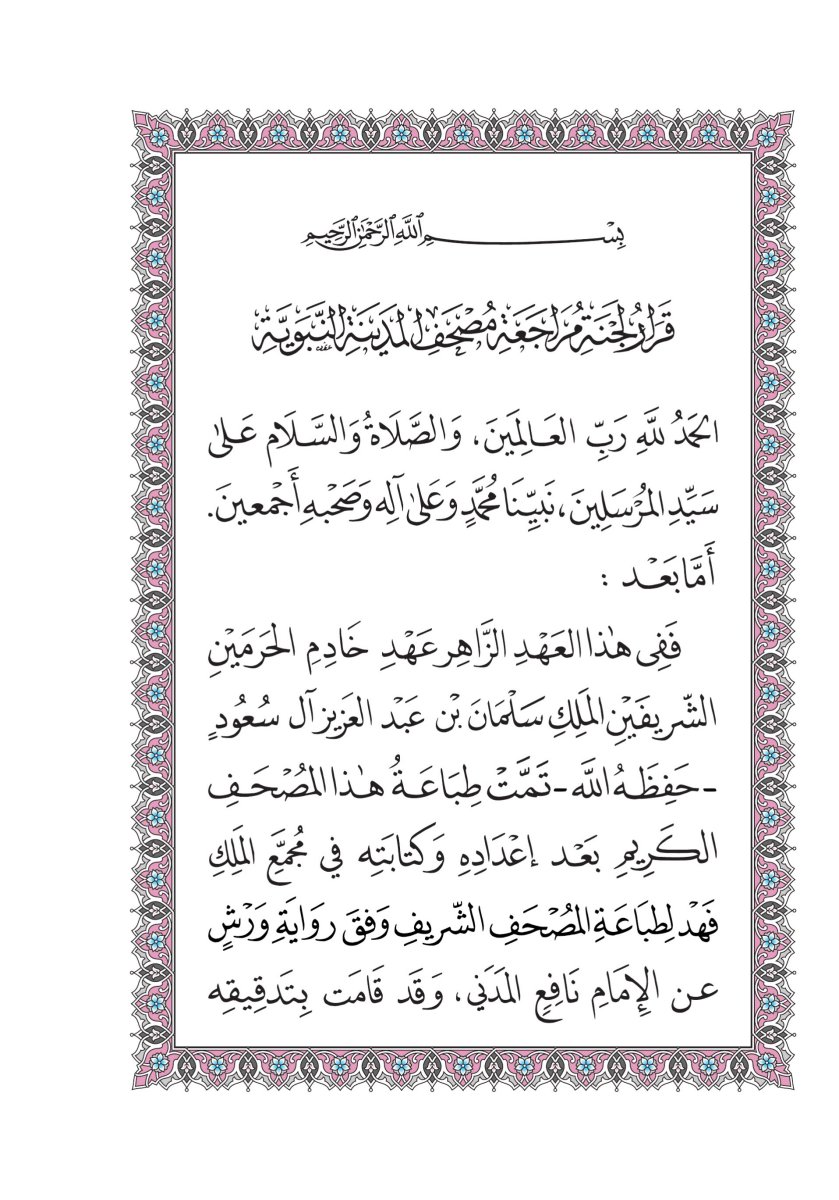 بِسْــــــمِ ٱللَّهِ ٱلرَّحْمَٰنِ ٱلرَّحِيمِ
قَرَارُ لَجْنَةِ مُرَاجَعَةِ مُصْحَفِ المَدِينَةِ النَّبَوِيَّةِ
الحَمْدُ للَّهِ رَبِّ العَالِمَينَ، وَالصَّلَاةُ وَالسَّلَام عَلىٰ
سَيِّدِ المُرْسَلِينَ، نَبِيِّنَا مُحَمَّدٍ وَعَلىٰ آلِه وَصَحْبِه أَجْمَعينَ.
أَمَّا بَعْد :
فَفِي هٰذا العَهْدِ الزَّاهِر عَهْدِ خَادِمِ الحَرَمَيْنِ
الشَّريفَيْنِ المَلِكِ سَلْمَانَ بْن عَبْد العَزيز آل سُعُودٍ
-حَفِظَهُ اللَّه- تَمَّتْ طِبَاعَةُ هٰذا المُصْحَفِ
الكَرِيمِ بَعْد إعْدَادِهِ وَكتابَتِه في مُجَمَّعِ المَلِكِ
فَهْد لِطبَاعَةِ المُصْحَفِ الشَّريفِ وَفقَ روَايَةِ وَرْشٍ
عن الإمَامِ نَافِعٍ المَدَني، وَقَد قَامَت بِتَدقِيقِه